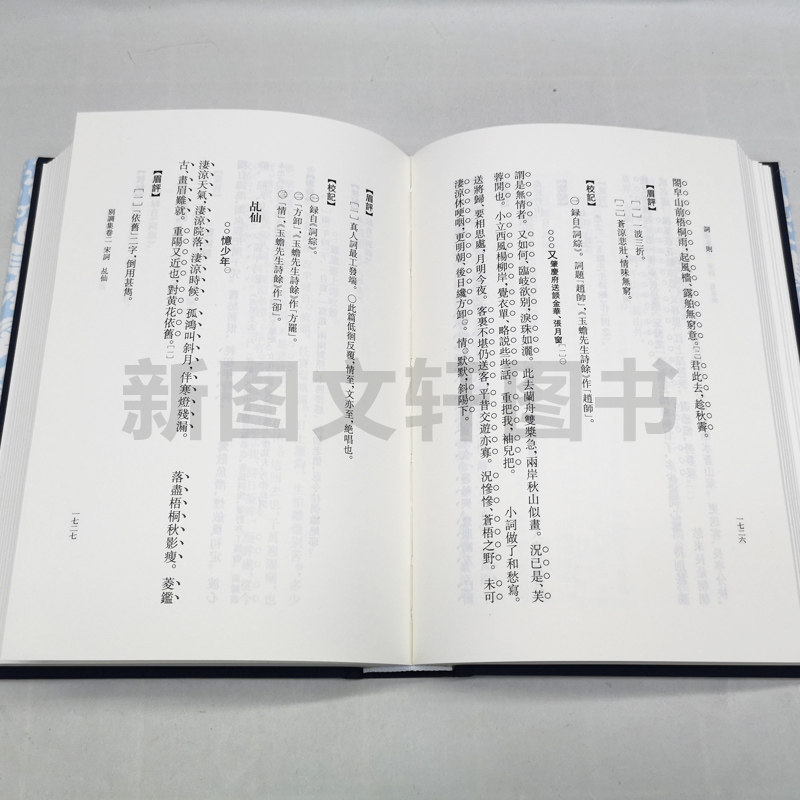 詞則
閣皁山前梧桐雨，起風檣、露舶無窮意。〔二〕君此去，趁秋霽。
【眉評】
〔一〕一波三折。
〔二〕蒼涼悲壯，情味無窮。
【校記】
㊀ 録自《詞綜》。詞題「趙帥」，《玉蟾先生詩餘》作「趙師」。
○○○又 肇慶府送談金華、張月窗〔一〕㊀
謂是無情者。又如何、臨岐欲别，淚珠如灑。此去蘭舟雙槳急，兩岸秋山似畫。況已是、芙
蓉開也。小立西風楊柳岸，覺衣單、略説些些話。重把我，袖兒把。　小詞做了和愁寫。
送將歸、要相思處，月明今夜。客裏不堪仍送客，平昔交遊亦寡。況慘慘、蒼梧之野。未可
淒涼休哽咽，更明朝、後日纔方卸㊁。情㊂默默，斜陽下。
一七二六
【眉評】
〔一〕真人詞最工發端。○此篇低徊反覆，情至，文亦至，絶唱也。
【校記】
㊀ 録自《詞綜》。
㊁「方卸」，《玉蟾先生詩餘》作「方罷」。
㊂「情」，《玉蟾先生詩餘》作「卻」。
乩仙
○○憶少年㊀
淒涼天氣，淒涼院落，淒涼時候。孤鴻叫斜月，伴寒燈殘漏。　落盡梧桐秋影瘦。菱鑑
古、畫眉難就。重陽又近也，對黃花依舊。〔一〕
【眉評】
〔一〕「依舊」二字，倒用甚雋。
別調集卷二 宋詞 乩仙
一七二七
新图文轩图书